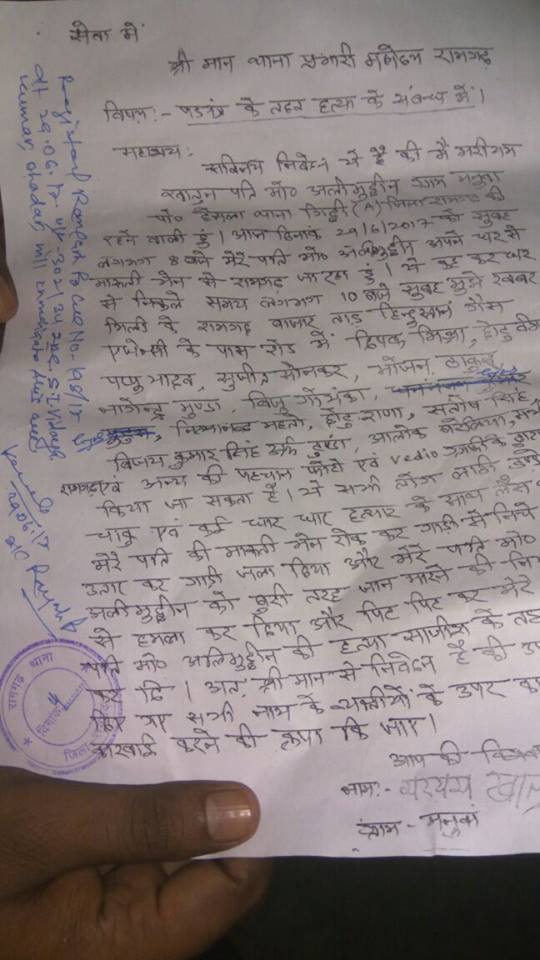 सेवा में
श्री मान थाना प्रभारी महोदय रामगढ़
विषय:- षडयंत्र के तहत हत्या के संबन्ध में।
महाशय:
सविनय निवेदन ये है की मैं मरीयम
खातुन पति मो० अलीमुद्दीन ग्राम मनुवा
पो० हेसला थाना गिद्दी (A) जिला रामगढ़ की
रहने वाली हुं। आज दिनांक 29/6/2017 को सुबह
लगभग 8 बजे मेरे पति मो० अलीमुद्दीन अपने घर से
मारूती भैन से रामगढ़ जा रहा हुं। ये कह कर घर
से निकले समय लगभग 10 बजे सुबह मुझे खबर
मिली के रामगढ़ बाजार टाड़ हिन्दुस्तान गैस
एजेन्सी के पास रोड में दिपक मिश्रा, छोटु वर्मा
पप्पु यादव, सुजीत सोनकर, भोंजन, ठाकुर
नागेन्द्र मुण्डा, विजु गोभंका,
नित्यानन्द महतो, छोटु राणा, संतोष सिंह
विजय कुमार सिंह उर्फ टुण्डा, आलोक
रामगढ़ एवं अन्य की पहचान फोटो एवं vedio ग्राफी के द्वारा
किया जा सकता है। ये सभी लोग लाठी डंडे
चाकु एवं कई धार धार हत्यार के साथ लैस
मेरे पति की मारूती भैन रोक कर गाडी से निचे
उतार कर गाडी जला दिया और मेरे पति मो०
अलीमुद्दीन को बुरी तरह जान मारने की
से हमला कर दिया और पिट पिट कर मेरे
पति मो० अलिमुद्दीन की हत्या साजीश के तहत
कर दि। अतः श्री मान से निवेदन है की
दिए गए सभी नाम के व्यक्तीयों के उपर
कारवाई करने की कृपा कि जाए।
आप की
नाम:- मरयम
ग्राम - मनुवां
Registered Ramgarh P.S. Case No. 198/17
dt 29.06.17 u/s 302/34 I.P.C. S.I. Vidya
29.06.17
रामगढ़ थाना